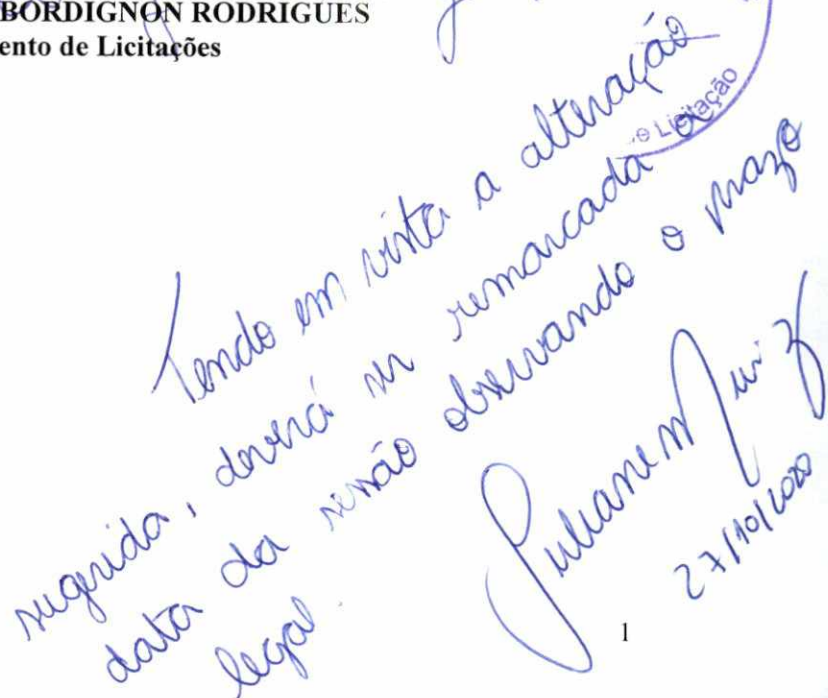 BORDIGNON RODRIGUES
ento de Licitações
Licitação
Tendo em vista a alteração
sugerida, deverá ser remarcada a
data da sessão observando o prazo
legal.
Juliane M Muniz
27/10/2020
1